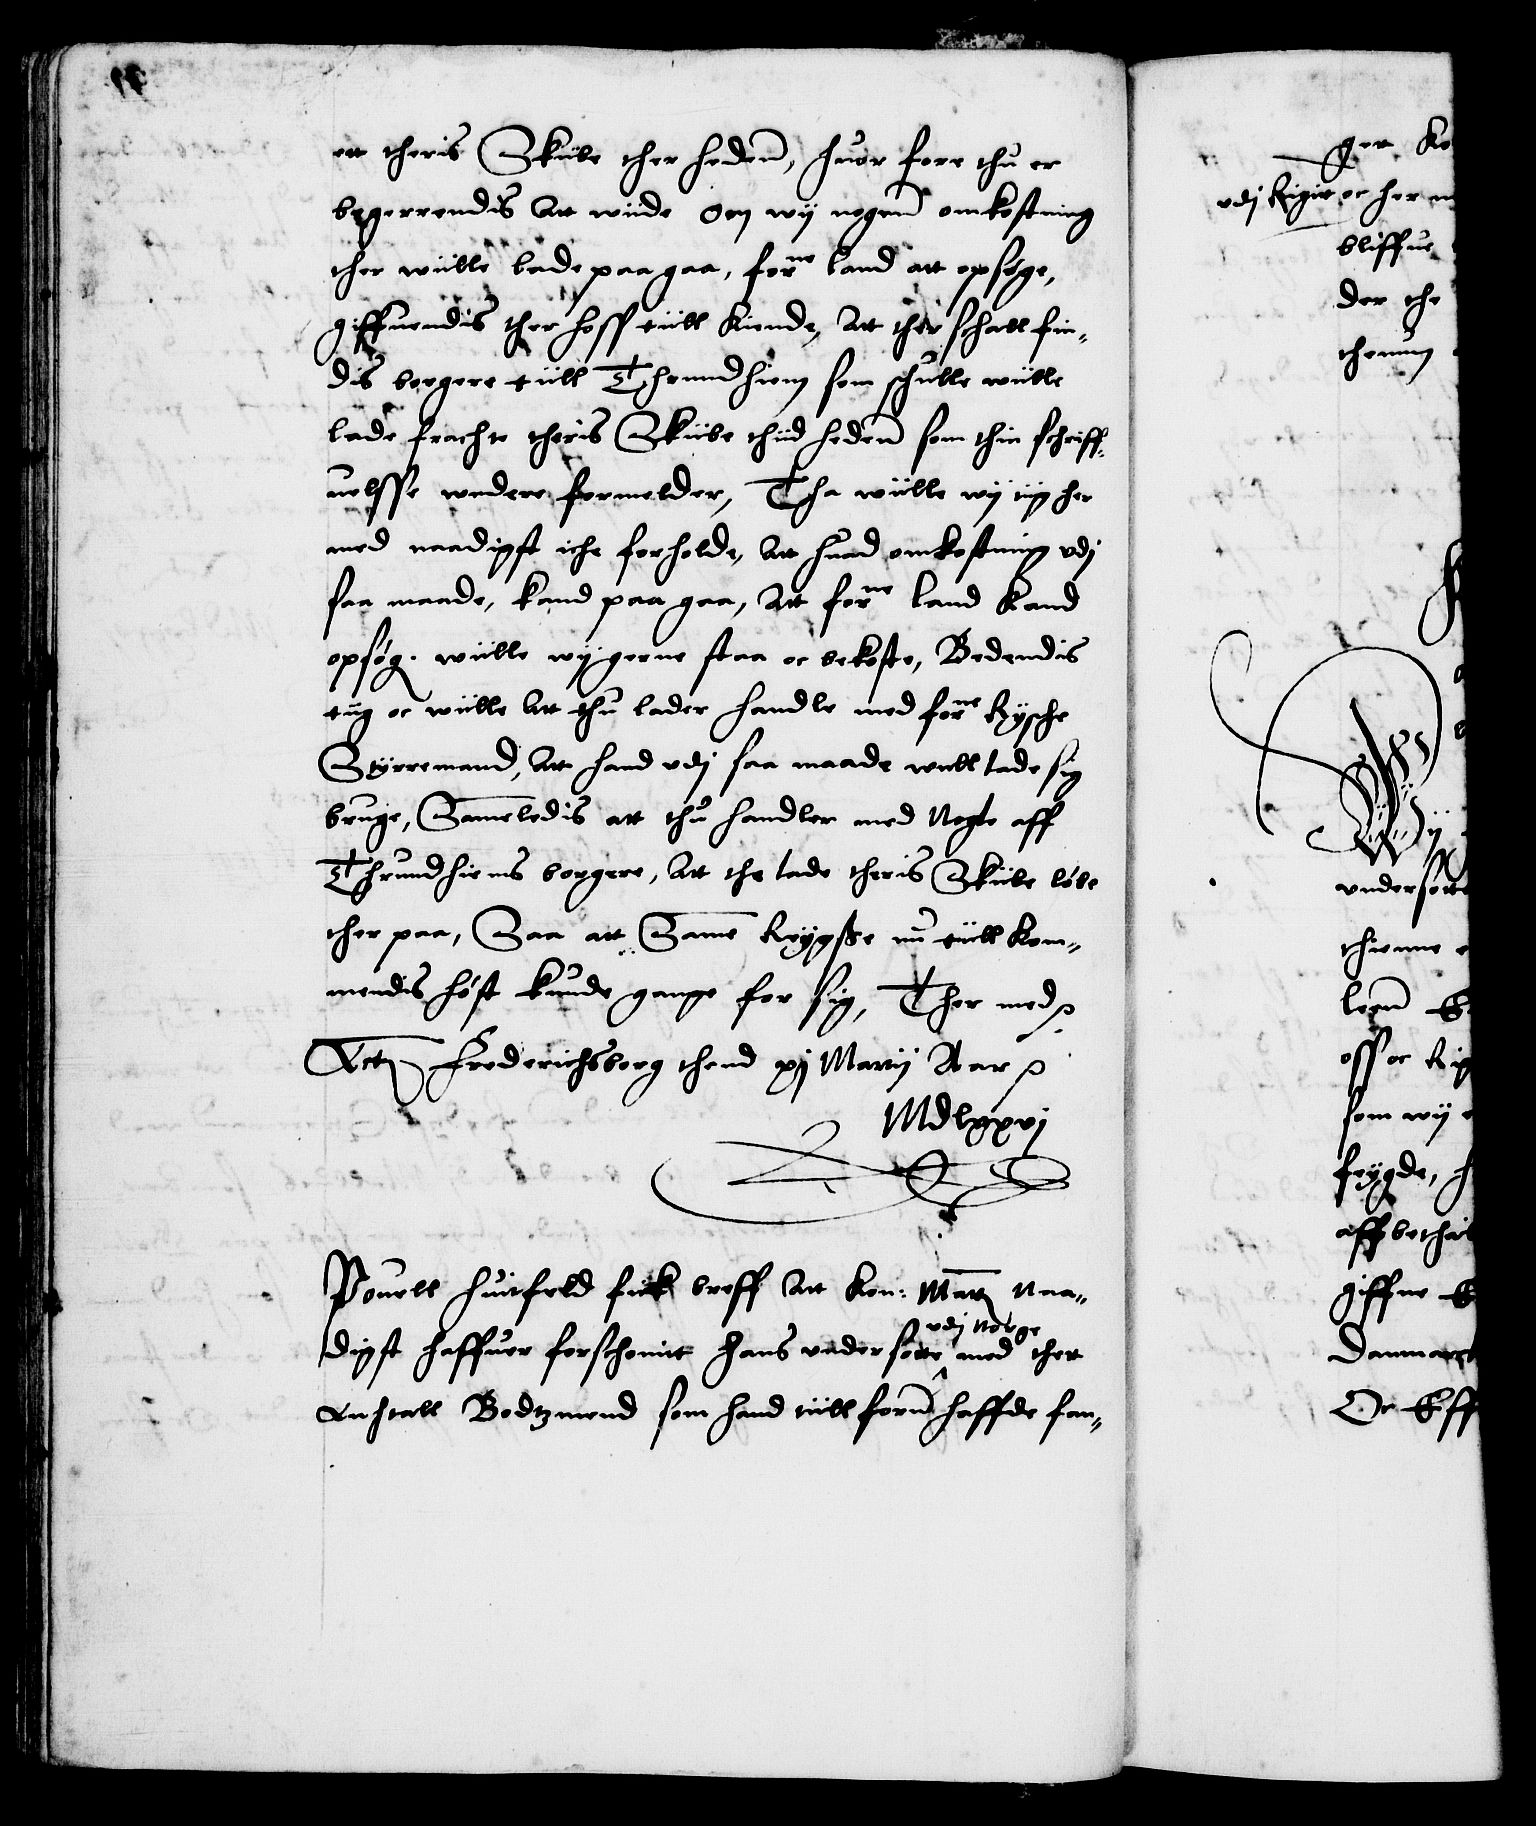 ett theris Skiibe ther heden, huor fore thu er
begerrendis Att wiide Om wij nogen omkostning
ther wiille lade paa gaa, forne land att opsøge,
giffuendis ther hoss tiill kiende, Att ther schall fin,,
dis borgere tiill Thrundhiem som schulle wiille
lade frachte theris Skiibe thiid heden som thin schriff,,
uelsse widere formelder, Tha wiille wij tig her
med naadigst iche forholde, Att huad omkostning vdj
saa maade, kand paa gaa, Att forne land kand
opsøg. wiille wij gerne staa oc bekoste, Bedendis
tiig oc wiille Att thu lader handle med forne Rÿsche
Stÿrremand, Att hand vdj saa maade will lade sig
bruge, Sameledis att thu handler med Nogle aff
Thrundhiems borgere, Att the lade theris Skiibe løbe
ther paa, Saa att Same Reÿgsse nu tiill kom,,
mendis høst kunde gange for sig, Ther med
Act Frederichsborg thend xj Martij Aar
Mdlxxvj
Pouell huitfeld fiick breff Att Kon: Matt Naa,,
digst haffuer forschonit Hans undersotte vdj Norge med thet
Anthall Bodtzmend som hand tiill forn haffde fan,,
ger Ko
vdj Rigit oc her
bliffue
der the
thennum
Wij
undersotte
thienne
oss oc Rig
som wij
feÿgde,
aff bethal
giffue
Danmarc
Oc Eff